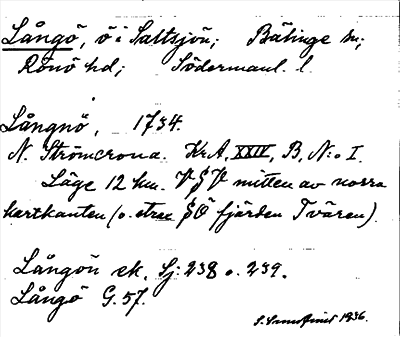 Långö, ö i Saltsjön; Bälinge sn;
Rönö hd; Södermanl. l.
Långnö, 1734.
N. Strömcrona. Kr.A, XXIV, B, N:o I.
Läge 12 km. VSV mitten av norra
kartkanten (o. strax SÖ fjärden Tvären).
Långön ek. Sj: 238 o. 239.
Långö G. 57.
1936.